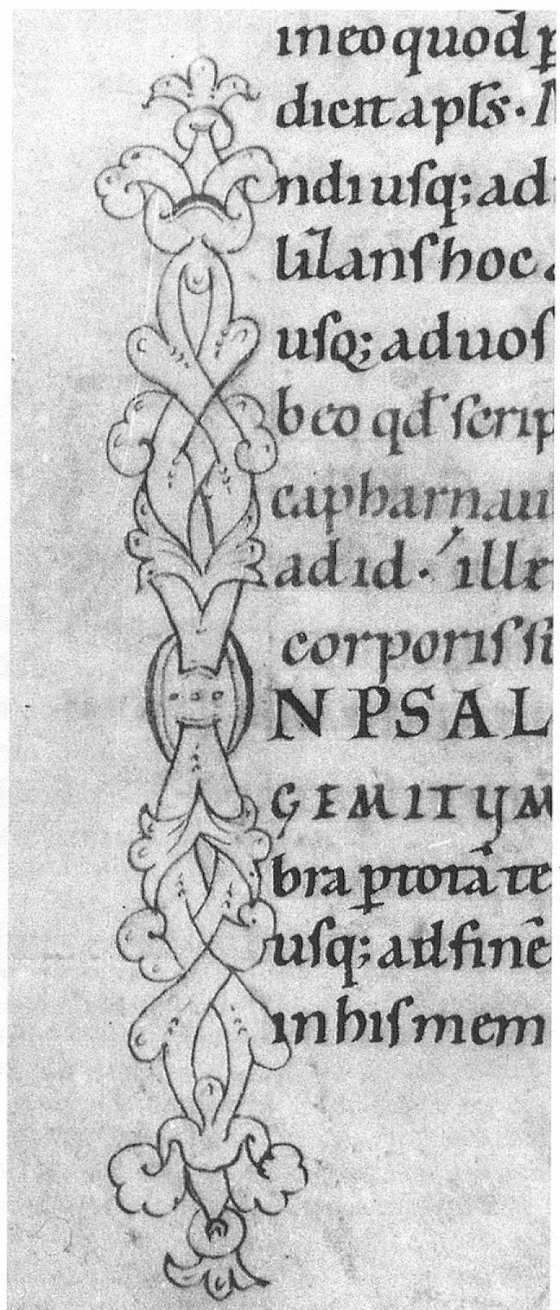 in eo quod p
dicit apls. I
ndi usq; ad
lilans hoc
usq; ad uos
beo qd scrip
capharnau
ad id. illx
corporis si
N PSAL
GEMITUM
bra ptota te
usq; ad finē
in his mem